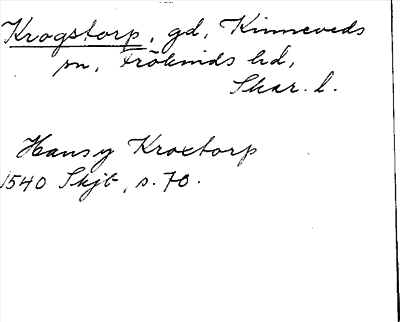 Krogstorp, gd, Kinneveds
sn, Frökinds hd,
Skar. l.
Hans y Kroxtorp
1540 Skjb, s. 70.